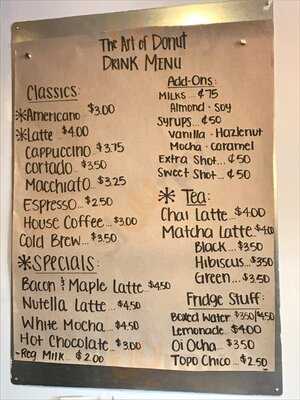 The Art of Donut
DRINK MENU
Classics:
*Americano $3.00
*Latte $4.00
Cappuccino $3.75
Cortado $3.50
Macchiato $3.25
Espresso $2.50
House Coffee $3.00
Cold Brew $3.50
*SPECIALS:
Bacon & Maple Latte $4.50
Nutella Latte $4.50
White Mocha $4.50
Hot Chocolate $3.00
-Reg Milk $2.00
Add-Ons:
MILKS ¢75
Almond - Soy
Syrups ¢50
Vanilla - Hazlenut
Mocha - Caramel
Extra Shot ¢50
Sweet Shot ¢50
* Tea:
Chai Latte $4.00
Matcha Latte $4.00
Black $3.50
Hibiscus $3.50
Green $3.50
Fridge Stuff:
Boxed Water $3.50/$4.50
Lemonade $4.00
Oi Ocha $3.50
Topo Chico $2.50